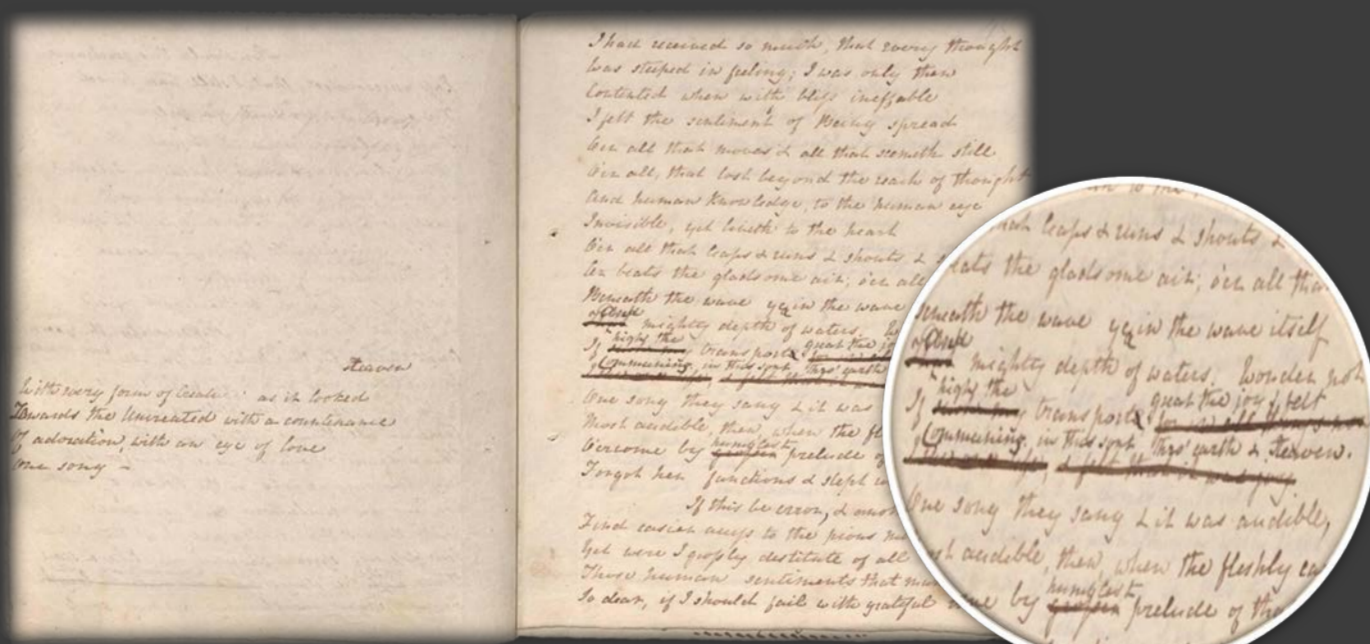 Heaven
With every form of as it looked
Towards the Uncreated with a countenance
Of adoration, with an eye of love
One song –
I had received so much, that every thought
Was steeped in feeling; I was only then
Contented when with bliss ineffable
I felt the sentiment of Being spread
O'er all that moves & all that seemeth still
O'er all, that lost beyond the reach of thought
And human knowledge, to the human eye
Invisible, yet liveth to the heart
O'er all that leaps & runs & shouts &
Or beats the gladsome air, o'er all
Beneath the wave yea in the wave
mighty depth of waters.
high the great the jo
If transports
Communing, in this sort, thro' earth
One song they sang & it was
Most audible, then, when the fl
humblest
O'ercome by prelude of
Forgot her functions & slept
If this be error, &
Find easier access to the pious
Yet were I grossly destitute of all
Those human sentiments that
So dear, if I should fail with grateful
leaps & runs & shouts &
eats the gladsome air, o'er all tha
Beneath the wave yea in the wave itself
mighty depth of waters. Wonder not
high the great the joy I felt
If transports
Communing, in this sort, thro' earth & Heaven.
One song they sang & it was audible,
st audible, then, when the fleshly ea
humblest
me by prelude of tha